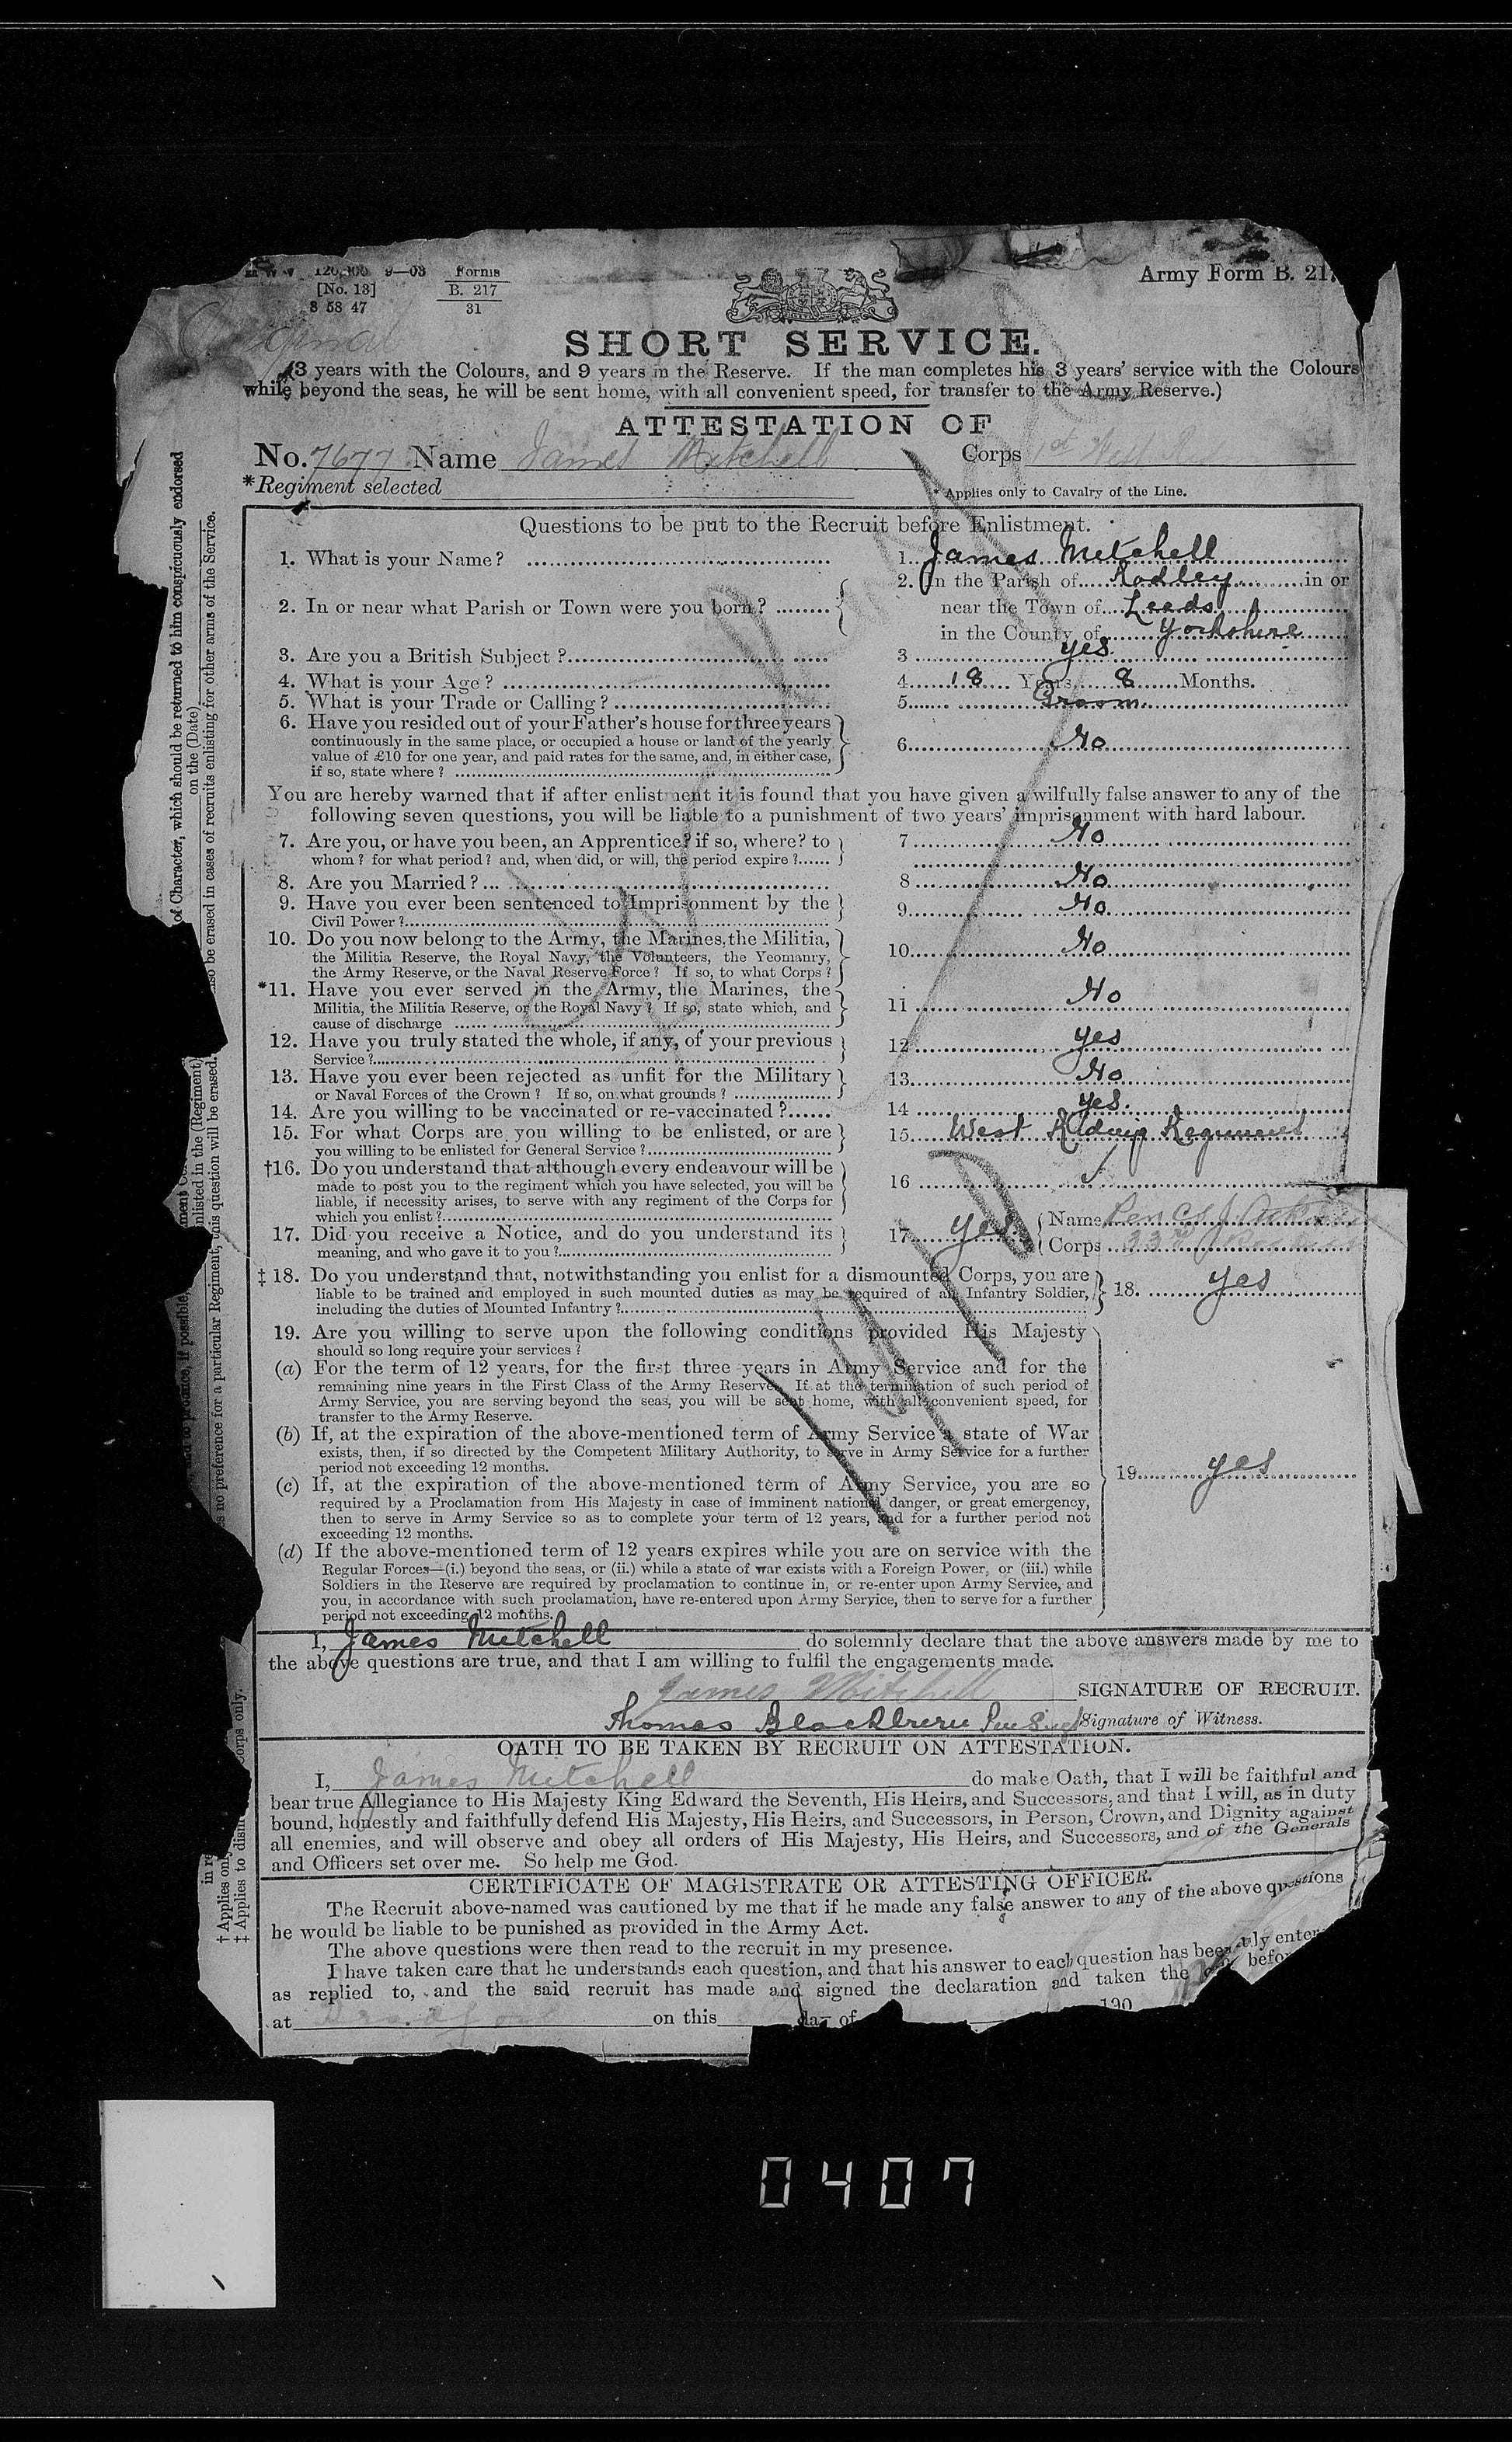 120,000 9—03 Forms
[No. 13] B. 217
8 58 47 31
Army Form B. 217
Original
SHORT SERVICE.
(3 years with the Colours, and 9 years in the Reserve. If the man completes his 3 years' service with the Colours
while beyond the seas, he will be sent home, with all convenient speed, for transfer to the Army Reserve.)
ATTESTATION OF
No. 7677 Name James Mitchell Corps 1st West
*Regiment selected * Applies only to Cavalry of the Line.
Questions to be put to the Recruit before Enlistment.
1. What is your Name? 1. James Mitchell
2. In or near what Parish or Town were you born? 2. In the Parish of Rodley in or
near the Town of Leeds
in the County of Yorkshire
3. Are you a British Subject? 3 yes
4. What is your Age? 4 18 Years 8 Months.
5. What is your Trade or Calling? 5 Groom
6. Have you resided out of your Father's house for three years
continuously in the same place, or occupied a house or land of the yearly 6 No
value of £10 for one year, and paid rates for the same, and, in either case,
if so, state where?
You are hereby warned that if after enlistment it is found that you have given a wilfully false answer to any of the
following seven questions, you will be liable to a punishment of two years' imprisonment with hard labour.
7. Are you, or have you been, an Apprentice? if so, where? to 7 No
whom? for what period? and, when did, or will, the period expire?
8. Are you Married? 8 No
9. Have you ever been sentenced to Imprisonment by the 9 No
Civil Power?
10. Do you now belong to the Army, the Marines, the Militia,
the Militia Reserve, the Royal Navy, the Volunteers, the Yeomanry, 10 No
the Army Reserve, or the Naval Reserve Force? If so, to what Corps?
*11. Have you ever served in the Army, the Marines, the
Militia, the Militia Reserve, or the Royal Navy? If so, state which, and 11 No
cause of discharge
12. Have you truly stated the whole, if any, of your previous 12 yes
Service?
13. Have you ever been rejected as unfit for the Military 13 No
or Naval Forces of the Crown? If so, on what grounds?
14. Are you willing to be vaccinated or re-vaccinated? 14 yes.
15. For what Corps are you willing to be enlisted, or are 15 West Riding Regiment
you willing to be enlisted for General Service?
†16. Do you understand that although every endeavour will be
made to post you to the regiment which you have selected, you will be 16
liable, if necessity arises, to serve with any regiment of the Corps for
which you enlist?
17. Did you receive a Notice, and do you understand its 17 yes Name
meaning, and who gave it to you? Corps 33rd
‡18. Do you understand that, notwithstanding you enlist for a dismounted Corps, you are
liable to be trained and employed in such mounted duties as may be required of an Infantry Soldier, 18. yes
including the duties of Mounted Infantry?
19. Are you willing to serve upon the following conditions provided His Majesty
should so long require your services?
(a) For the term of 12 years, for the first three years in Army Service and for the
remaining nine years in the First Class of the Army Reserve. If at the termination of such period of
Army Service, you are serving beyond the seas, you will be sent home, with all convenient speed, for
transfer to the Army Reserve.
(b) If, at the expiration of the above-mentioned term of Army Service a state of War
exists, then, if so directed by the Competent Military Authority, to serve in Army Service for a further
period not exceeding 12 months. 19 yes
(c) If, at the expiration of the above-mentioned term of Army Service, you are so
required by a Proclamation from His Majesty in case of imminent national danger, or great emergency,
then to serve in Army Service so as to complete your term of 12 years, and for a further period not
exceeding 12 months.
(d) If the above-mentioned term of 12 years expires while you are on service with the
Regular Forces—(i.) beyond the seas, or (ii.) while a state of war exists with a Foreign Power, or (iii.) while
Soldiers in the Reserve are required by proclamation to continue in, or re-enter upon Army Service, and
you, in accordance with such proclamation, have re-entered upon Army Service, then to serve for a further
period not exceeding 12 months.
I, James Mitchell do solemnly declare that the above answers made by me to
the above questions are true, and that I am willing to fulfil the engagements made.
James Mitchell SIGNATURE OF RECRUIT.
Thomas Blackburn Signature of Witness.
OATH TO BE TAKEN BY RECRUIT ON ATTESTATION.
I, James Mitchell do make Oath, that I will be faithful and
bear true Allegiance to His Majesty King Edward the Seventh, His Heirs, and Successors, and that I will, as in duty
bound, honestly and faithfully defend His Majesty, His Heirs, and Successors, in Person, Crown, and Dignity against
all enemies, and will observe and obey all orders of His Majesty, His Heirs, and Successors, and of the Generals
and Officers set over me. So help me God.
CERTIFICATE OF MAGISTRATE OR ATTESTING OFFICER.
The Recruit above-named was cautioned by me that if he made any false answer to any of the above questions
he would be liable to be punished as provided in the Army Act.
The above questions were then read to the recruit in my presence.
I have taken care that he understands each question, and that his answer to each question has been duly enter
as replied to, and the said recruit has made and signed the declaration and taken the befo
at Bradford on this day of 190
of Character, which should be returned to him conspicuously endorsed
on the (Date)
so be erased in cases of recruits enlisting for other arms of the Service.
nlisted in the (Regiment)
s no preference for a particular Regiment, this question will be erased.
† Applies onl
‡ Applies to dism orps only.
0407